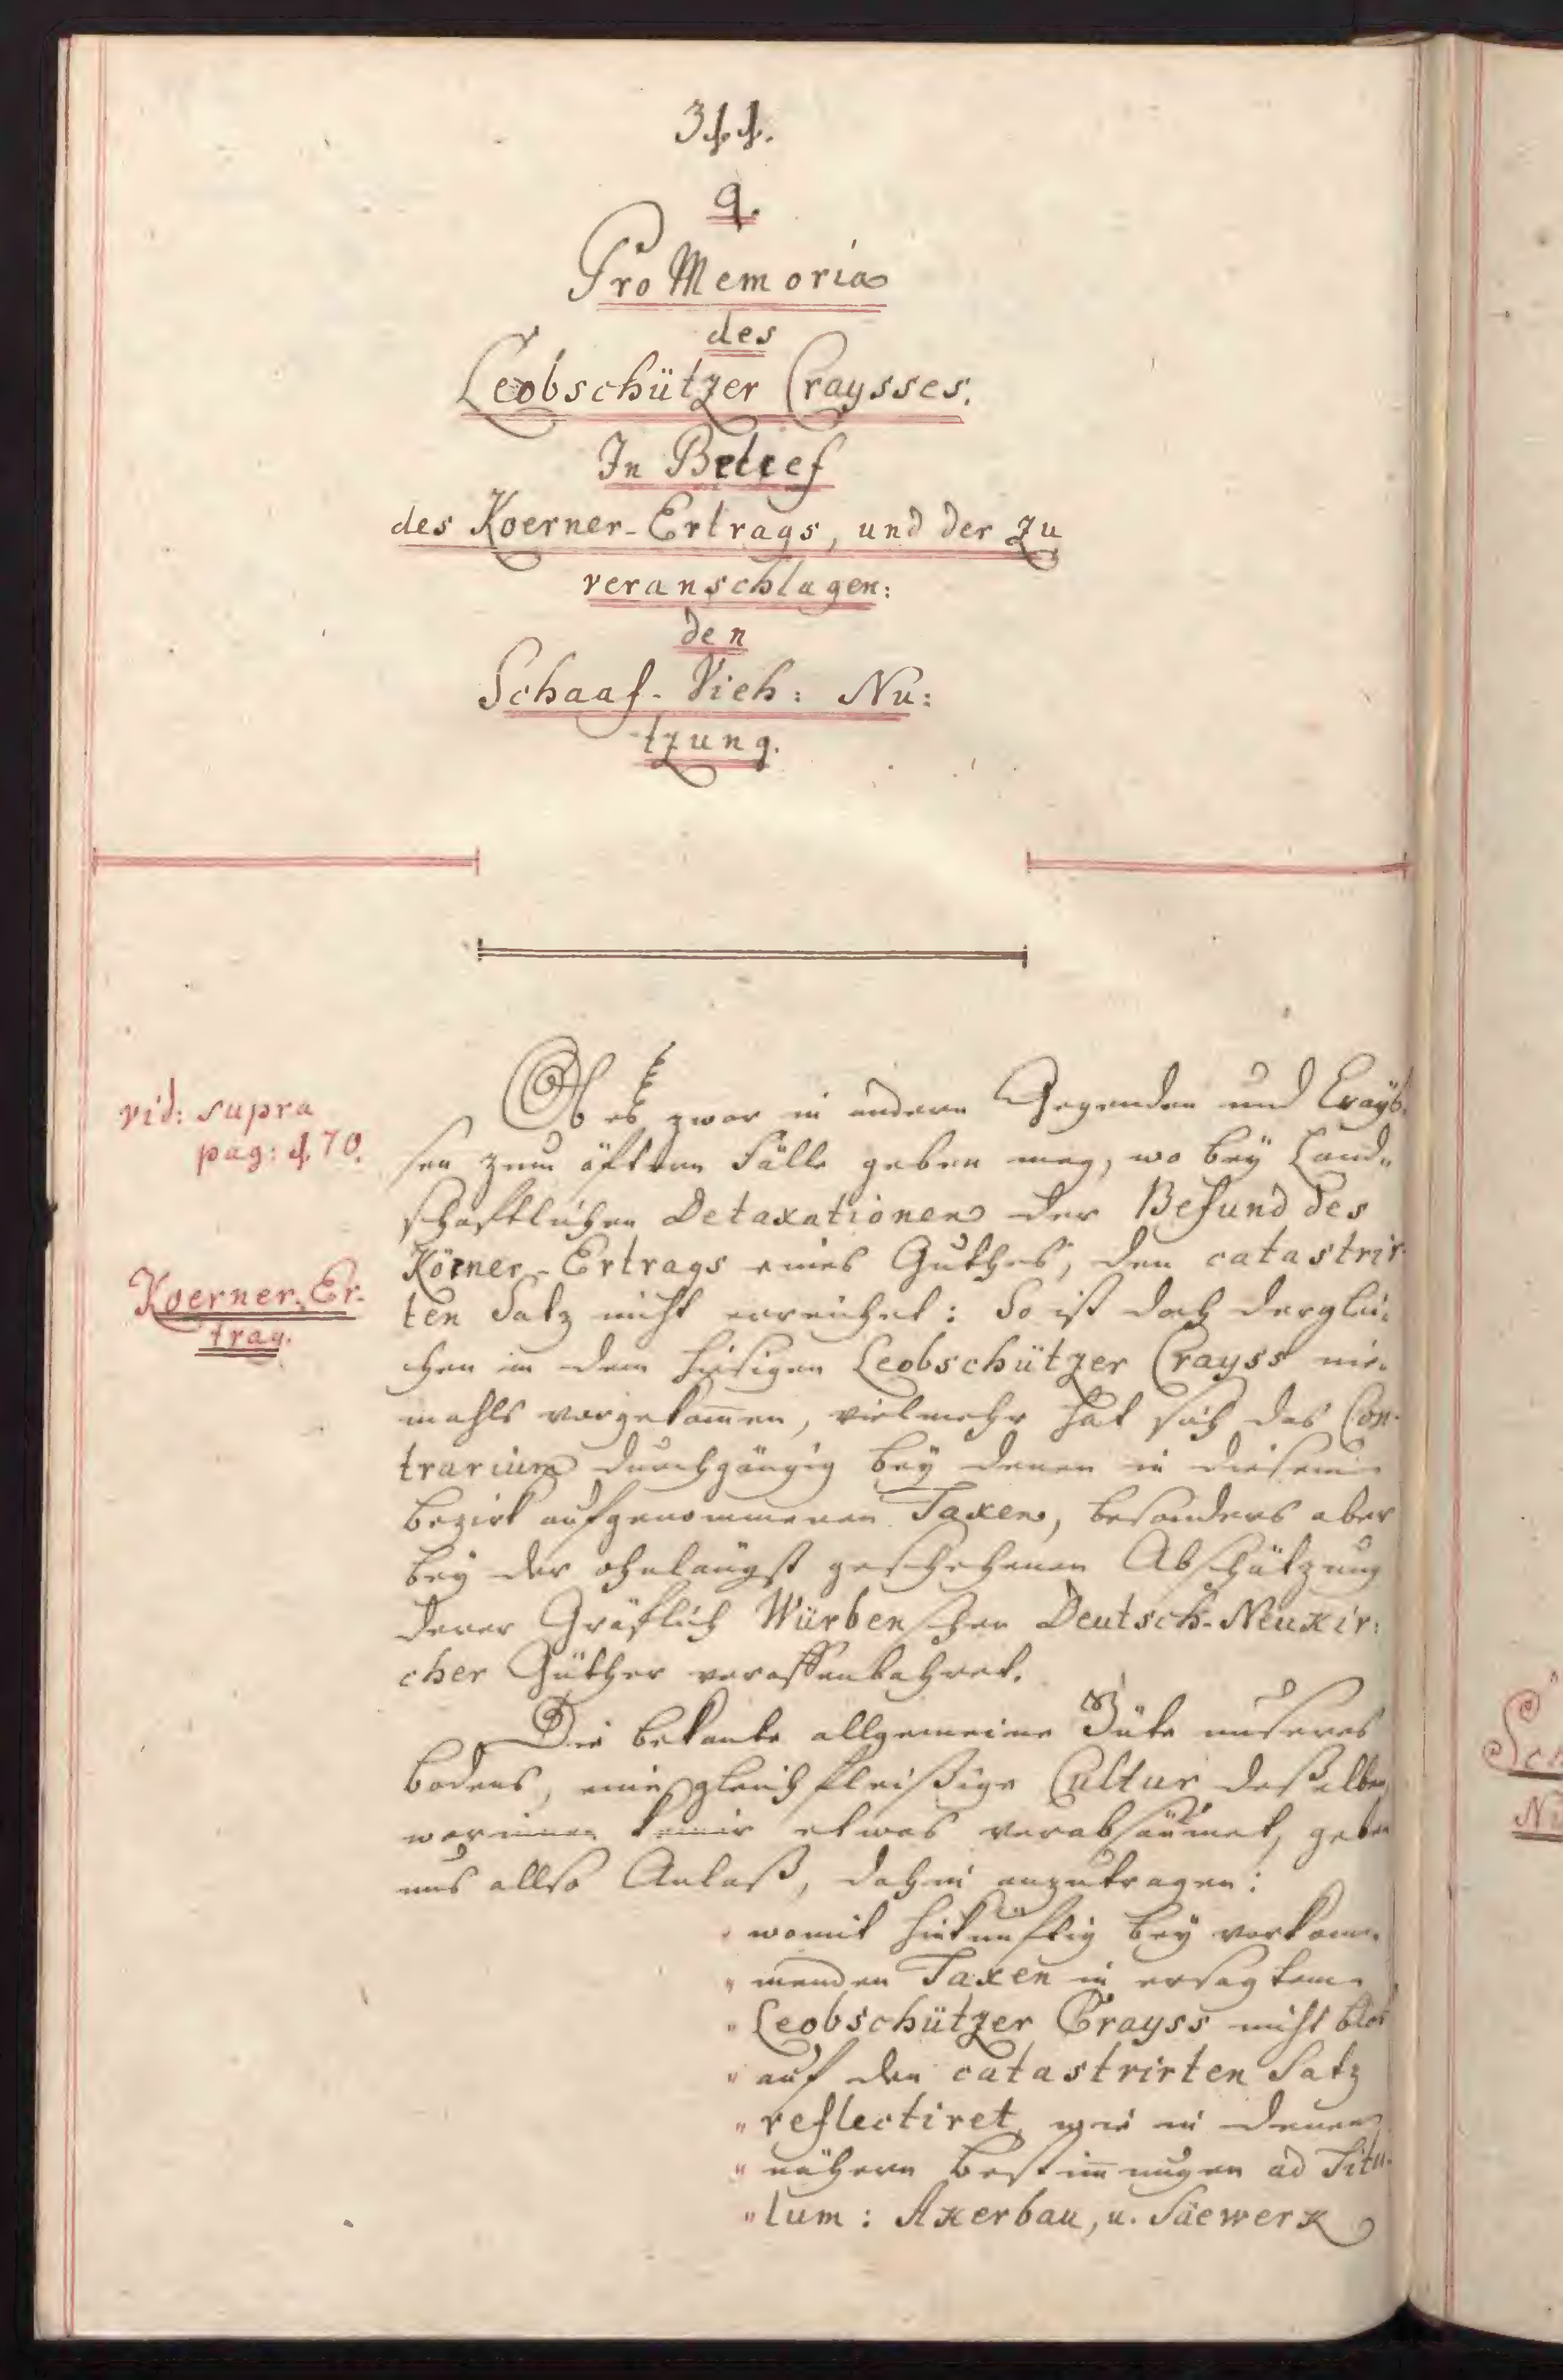 344.
9.
Pro Memoria
des
Leobschützer Craysses.
In Betref
des Koerner-Ertrags, und der zu
veranschlagen:
den
Schaaf-Vieh: Nu:
tzung.
vid: supra
pag: 470.
Koerner-Er-
trag.
Ob es zwar in andern Gegenden und Crayß-
sen zum öftern Fälle geben mag, wo bey Land-
schaftlichen Detaxationen der Befund des
Körner-Ertrags eines Guthes, den catastrir-
ten Satz nicht erreichet: So ist doch derglei-
chen in dem hiesigen Leobschützer Crayss nie-
mahls vorgekommen, vielmehr hat sich das Con-
trarium durchgängig bey denen in diesem
Bezirk aufgenommenen Taxen, besonders aber
bey der ohnlängst geschehenen Abschätzung
derer Gräflich Würbenschen Deutsch-Neukir:
cher Güther veroffenbahret.
Die bekante allgemeine Güte unseres
Bodens, eine gleich fleißige Cultur deßelben
worinnen keiner etwas verabsäumet, geben
uns allso Anlaß, dahin anzutragen:
" womit hinkünftig bey vorkom-
" menden Taxen in ersagtem
" Leobschützer Crayss nicht blos
" auf den catastrirten Satz
" reflectiret, wie in denen
" nähern Bestimmungen ad Titu-
" lum: Akerbau, u. Säewerk